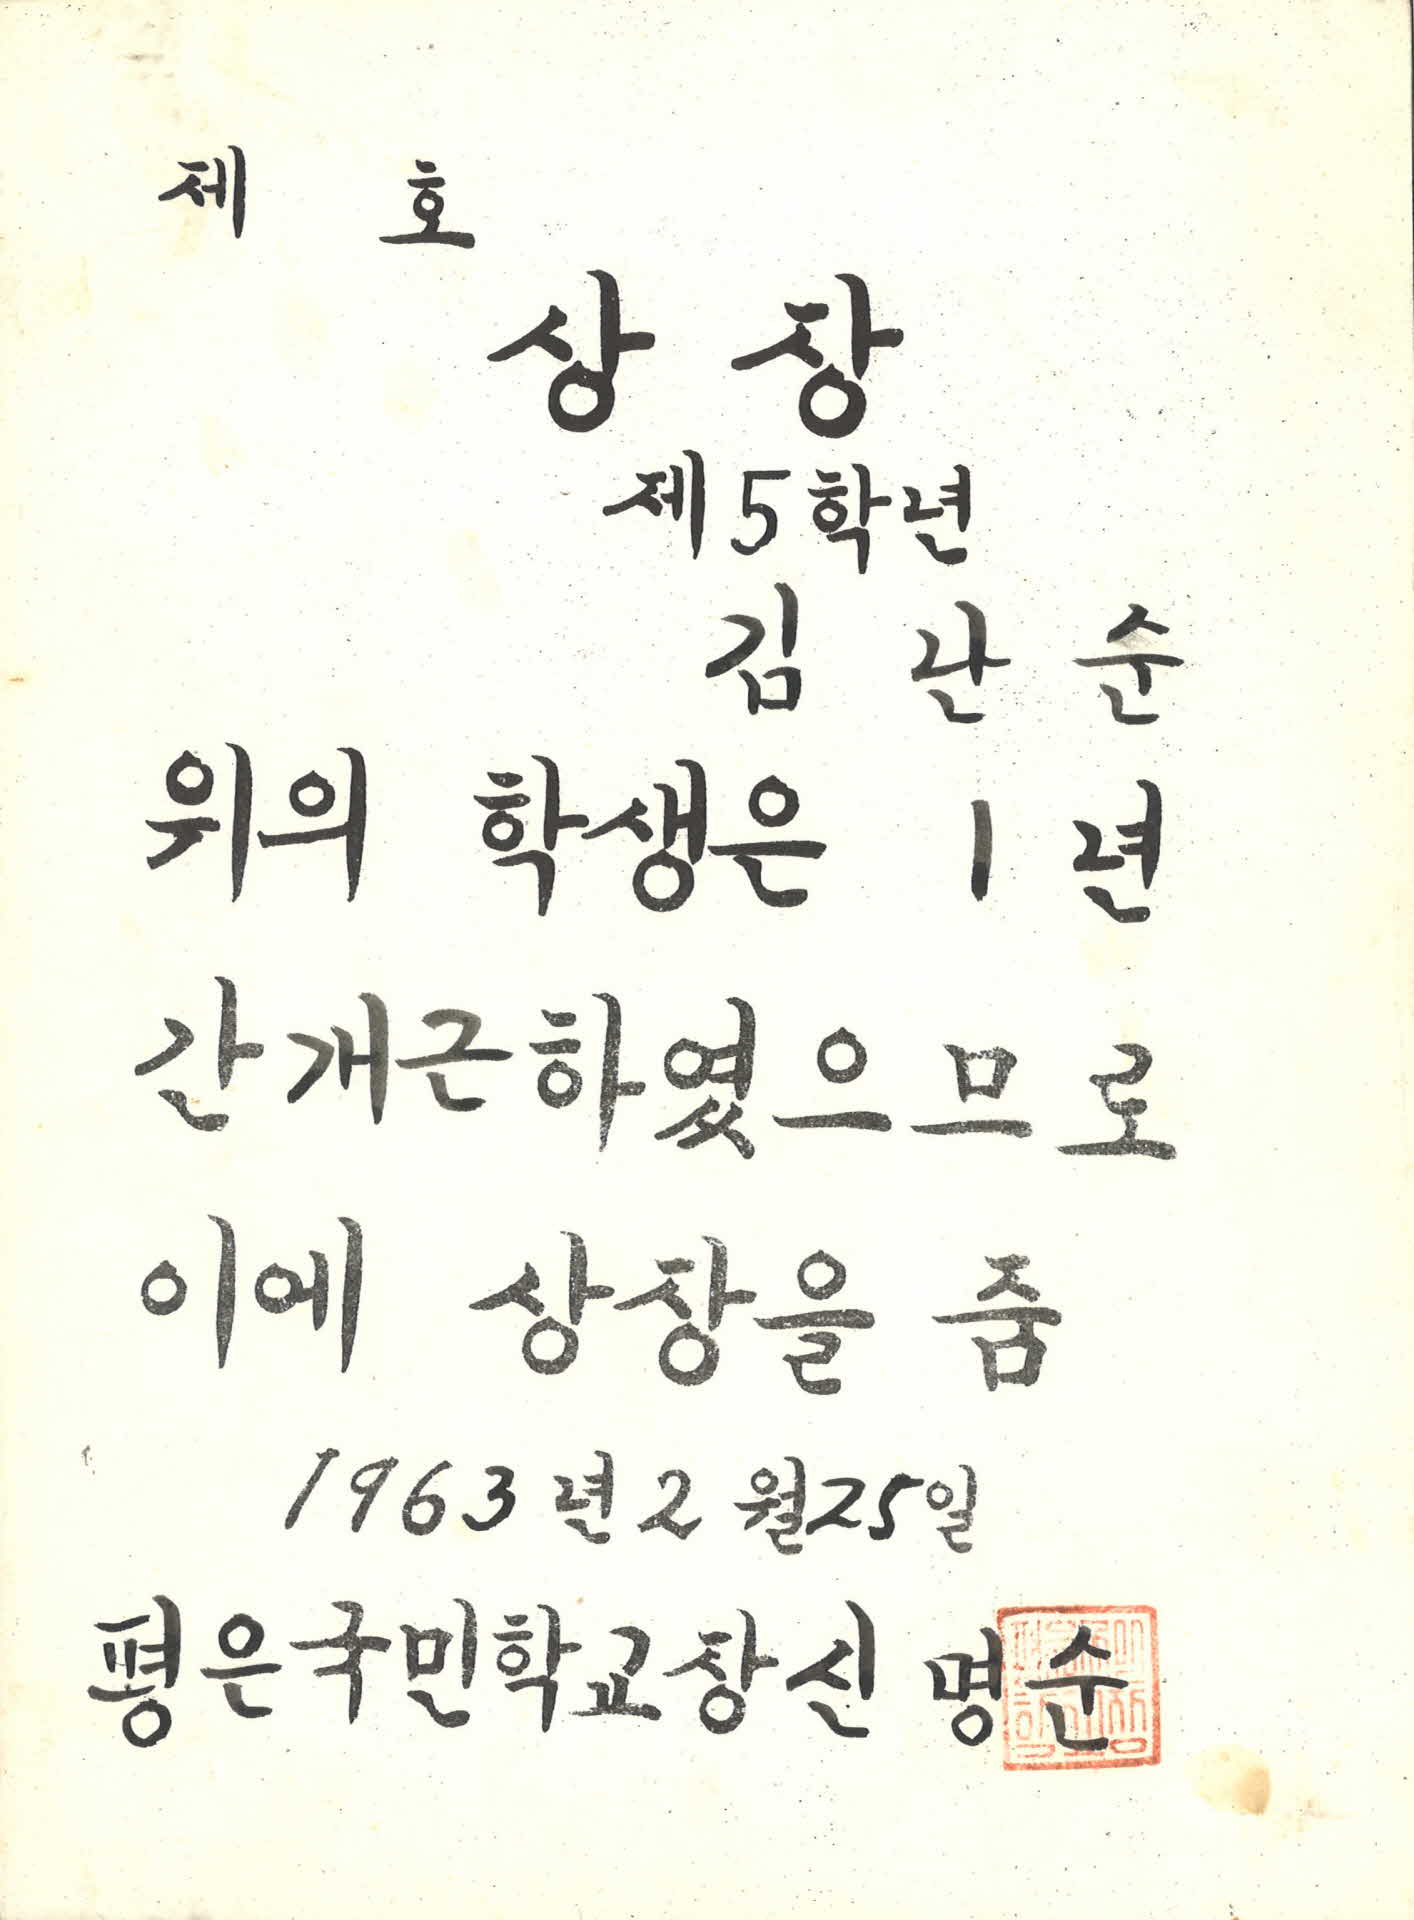 제 호
상 장
제5학년
김 난 순
위의 학생은 1년
간개근하였으므로
이에 상장을 줌
1963년2월25일
평은국민학교장신 명 순